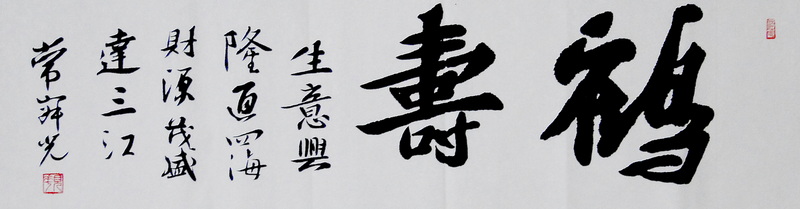 鶴壽
生意興
隆通四海
財源茂盛
達三江
常 光